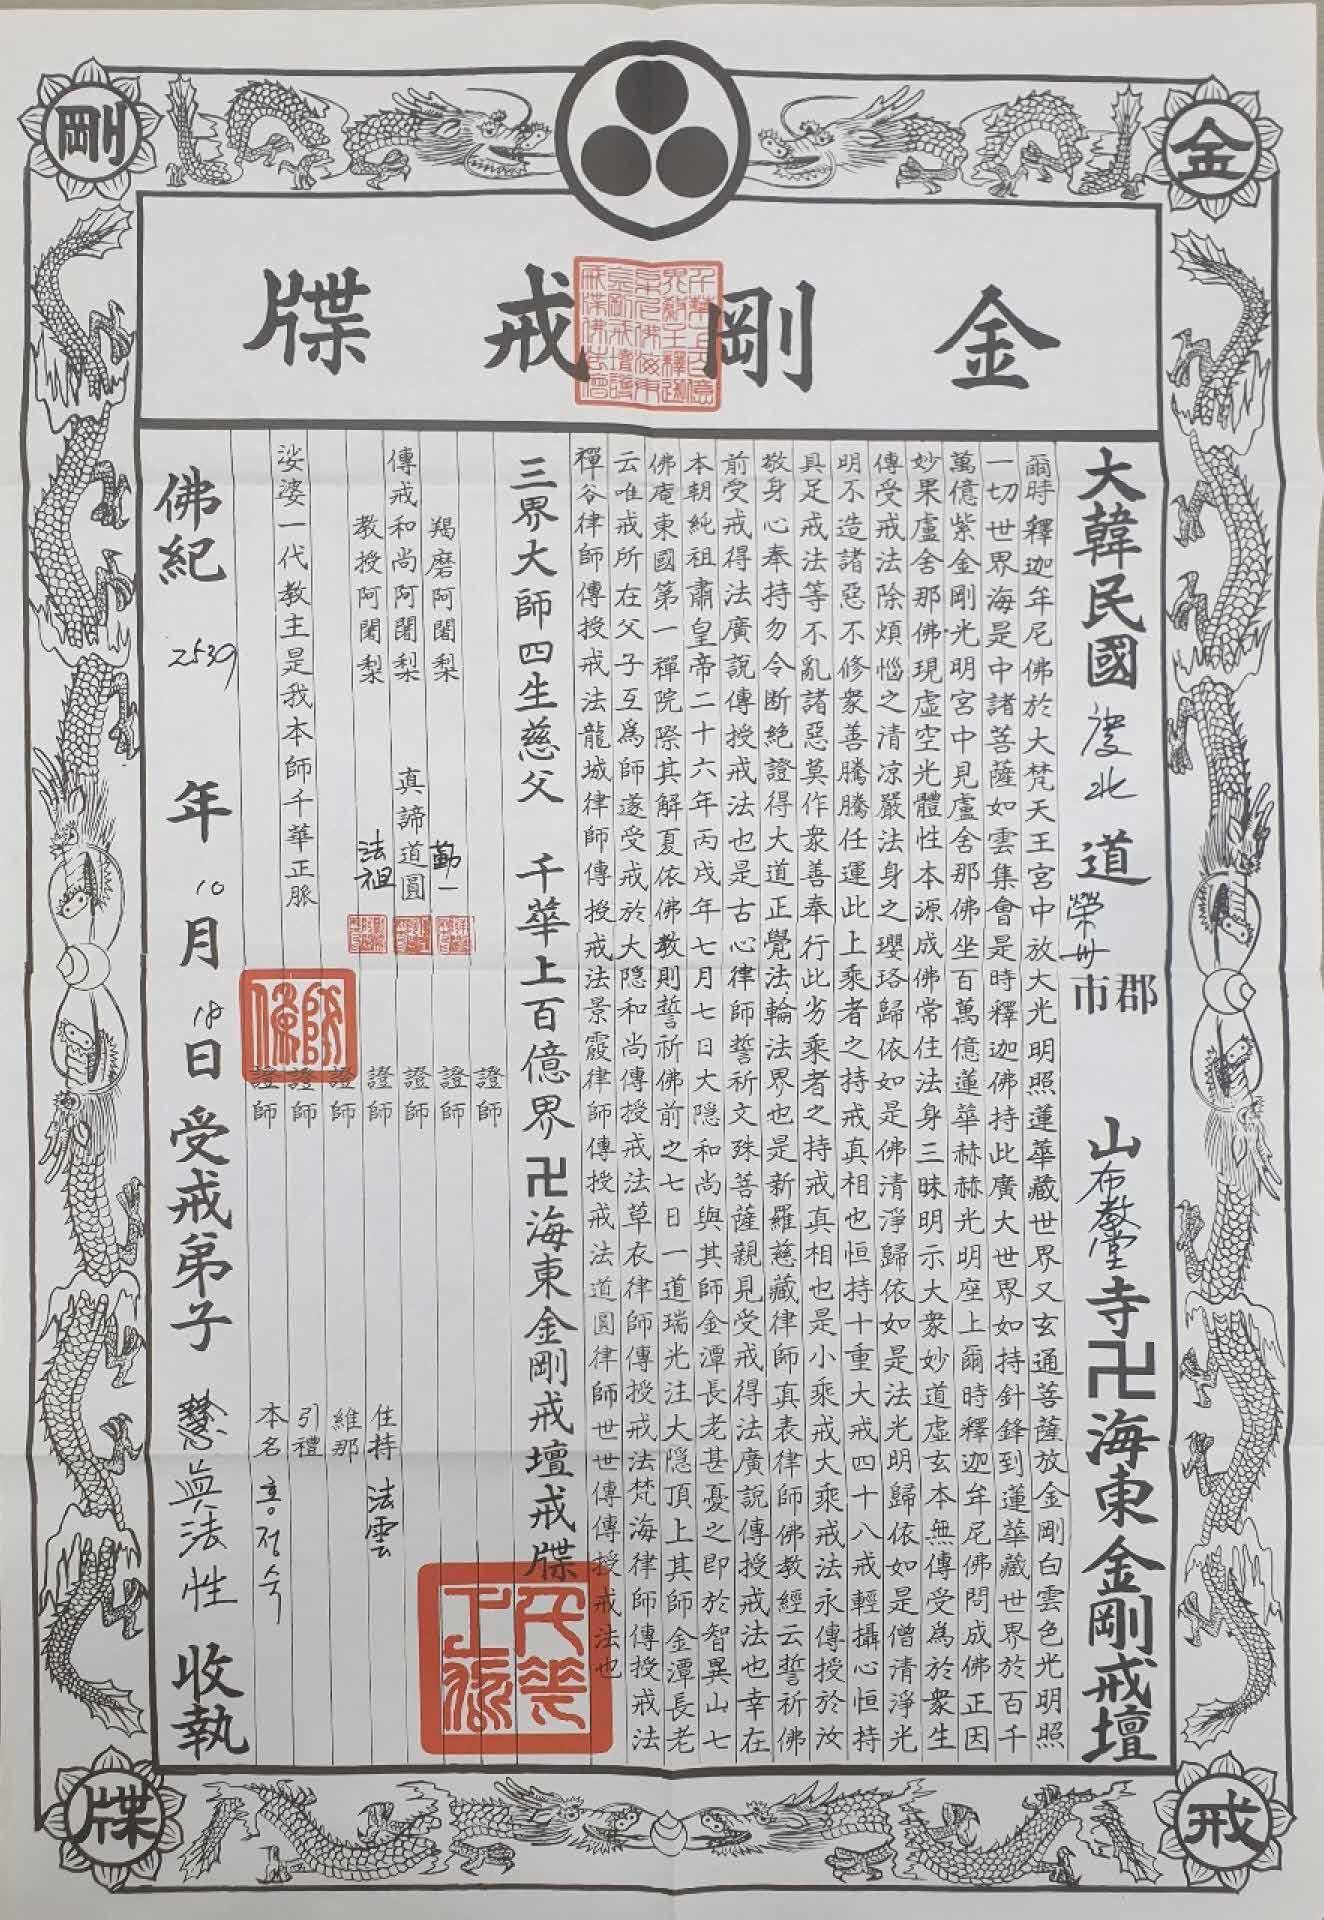 金剛戒牒
大韓民國 慶北 道 榮州 市郡 山 布教堂 寺 卍 海東金剛戒壇
爾時釋迦牟尼佛於大梵天王宮中放大光明照蓮華藏世界又玄通菩薩放金剛白雲色光明照
一切世界海是中諸菩薩如雲集會是時釋迦佛持此廣大世界如持針鋒到蓮華藏世界於百千
萬億紫金剛光明宮中見盧舍那佛坐百萬億蓮華赫赫光明座上爾時釋迦牟尼佛問成佛正因
妙果盧舍那佛現虛空光體性本源成佛常住法身三昧明示大衆妙道虛玄本無傳受爲於衆生
傳受戒法除煩惱之清凉嚴法身之瓔珞歸依如是佛清淨歸依如是法光明歸依如是僧清淨光
明不造諸惡不修衆善騰騰任運此上乘者之持戒真相也恒持十重大戒四十八戒輕攝心恒持
具足戒法等不亂諸惡莫作衆善奉行此劣乘者之持戒真相也是小乘戒大乘戒法永傳授於汝
敬身心奉持勿令断絶證得大道正覺法輪法界也是新羅慈藏律師真表律師佛教經云誓祈佛
前受戒得法廣說傳授戒法也是古心律師誓祈文殊菩薩親見受戒得法廣說傳授戒法也幸在
本朝純祖肅皇帝二十六年丙戌年七月七日大隱和尚與其師金潭長老甚憂之即於智異山七
佛庵東國第一禪院際其解夏依佛教則誓祈佛前之七日一道瑞光注大隱頂上其師金潭長老
云唯戒所在父子互爲師遂受戒於大隱和尚傳授戒法草衣律師傳授戒法梵海律師傳授戒法
禪谷律師傳授戒法龍城律師傳授戒法景霞律師傳授戒法道圓律師世世傳傳授戒法也
三界大師四生慈父 千華上百億界 卍 海東金剛戒壇戒牒
證師
羯磨阿闍梨 勤一 證師
傳戒和尚阿闍梨 真諦道圓 證師
教授阿闍梨 法祖 證師 住持 法雲
證師 維那
娑婆一代教主是我本師千華正脈 證師 引禮
證師 本名 홍정숙
佛紀 2539 年 10 月 18 日 受戒弟子 慧眞法性 收執
金
剛
戒
牒